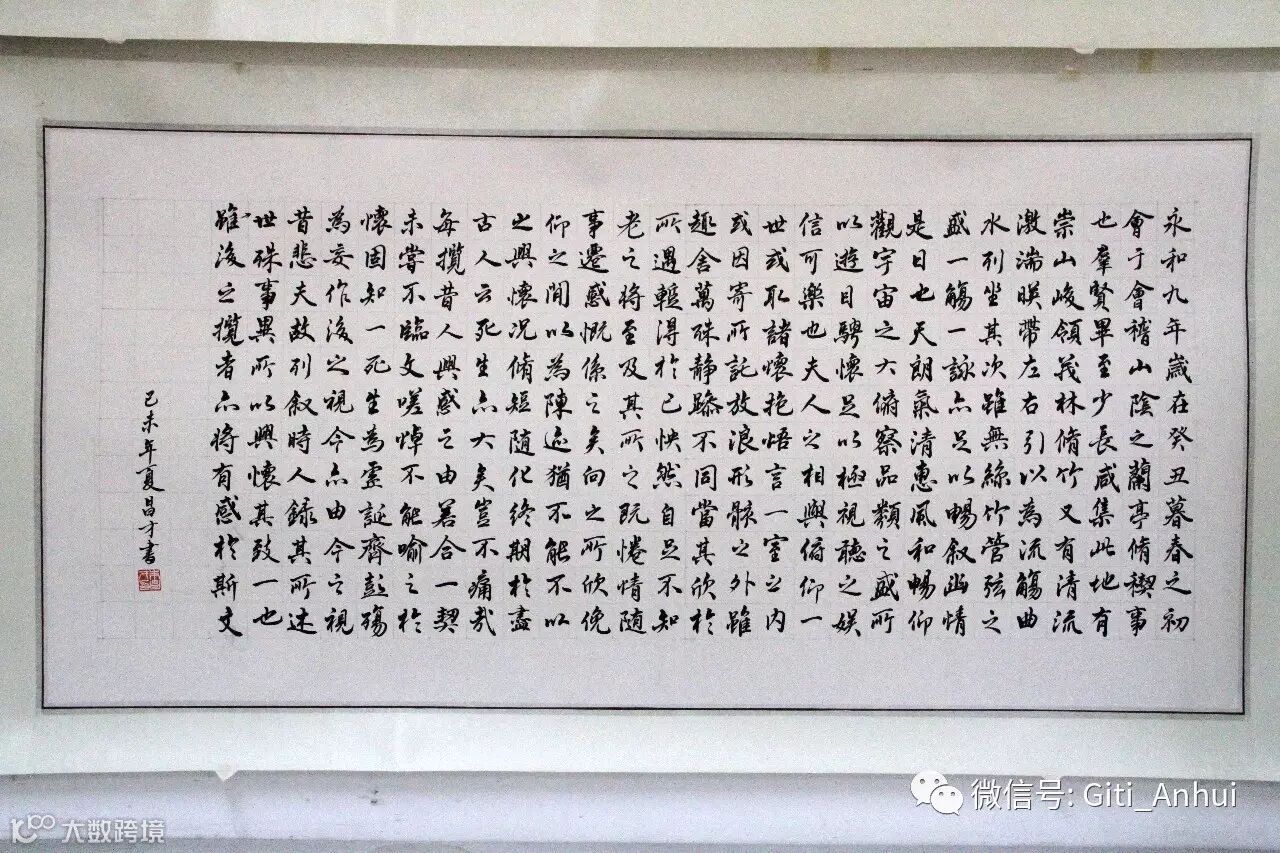 永和九年歲在癸丑暮春之初
會于會稽山陰之蘭亭脩稧事
也羣賢畢至少長咸集此地有
崇山峻領茂林脩竹又有清流
激湍暎帶左右引以為流觴曲
水列坐其次雖無絲竹管弦之
盛一觴一詠亦足以暢叙幽情
是日也天朗氣清惠風和暢仰
觀宇宙之大俯察品類之盛所
以遊目騁懷足以極視聽之娛
信可樂也夫人之相與俯仰一
世或取諸懷抱悟言一室之內
或因寄所託放浪形骸之外雖
趣舍萬殊静躁不同當其欣於
所遇蹔得於己怏然自足不知
老之將至及其所之既惓情隨
事遷感慨係之矣向之所欣俛
仰之間以為陳迹猶不能不以
之興懷况脩短隨化終期於盡
古人云死生亦大矣豈不痛哉
每攬昔人興感之由若合一契
未嘗不臨文嗟悼不能喻之於
懷固知一死生為虛誕齊彭殤
為妄作後之視今亦由今之視
昔悲夫故列叙時人錄其所述
世殊事異所以興懷其致一也
雖後之攬者亦將有感於斯文
己未年夏昌才書
微信号: Giti_Anhui
大数跨境